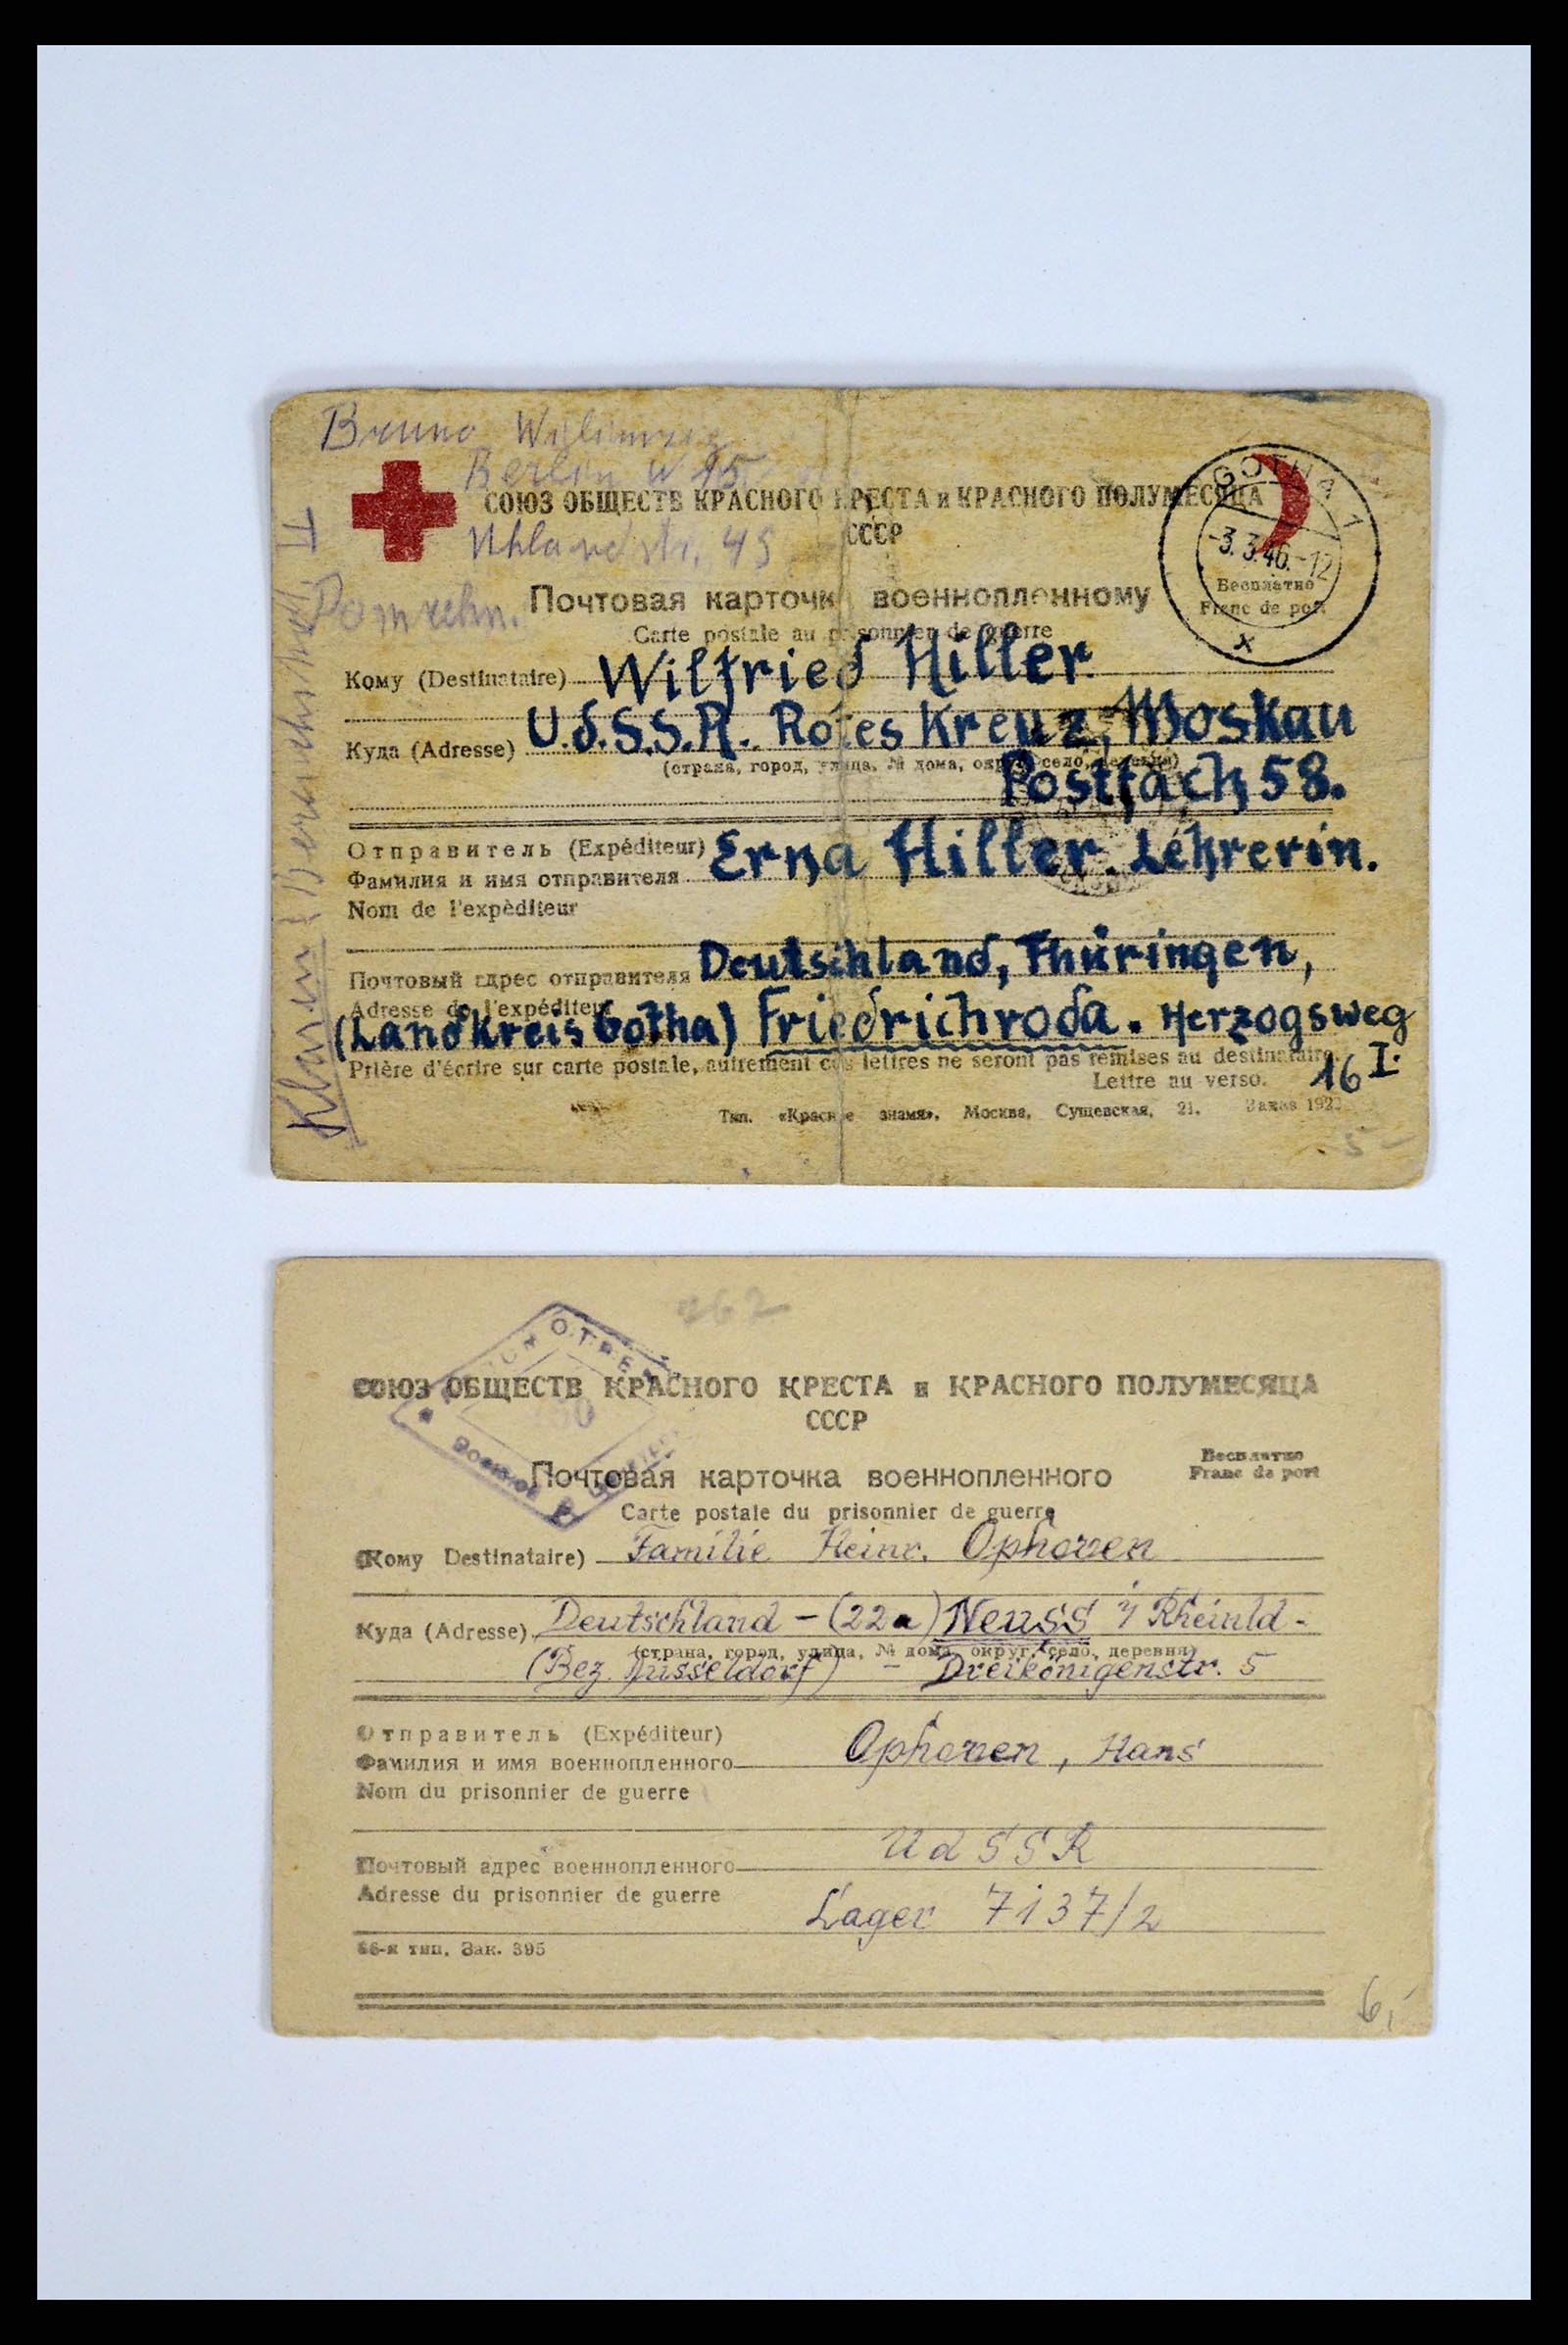 Bruno
Berlin W 15
СОЮЗ ОБЩЕСТВ КРАСНОГО КРЕСТА и КРАСНОГО ПОЛУМЕСЯЦА
СССР
Uhlandstr. 45
GOTHA 1
-3.3.46.-12
Бесплатно
Franc de port
x
Почтовая карточка военнопленному
Carte postale au prisonnier de guerre
Кому (Destinataire) Wilfried Hiller.
Куда (Adresse) U.d.S.S.R. Rotes Kreuz, Moskau
(страна, город, улица, № дома, округ, село, деревня)
Postfach 58.
Отправитель (Expéditeur) Erna Hiller. Lehrerin.
Фамилия и имя отправителя
Nom de l'expéditeur
Почтовый адрес отправителя Deutschland, Thüringen,
Adresse de l'expéditeur
(Landkreis Gotha) Friedrichroda. Herzogsweg
16 I.
Prière d'écrire sur carte postale, autrement ces lettres ne seront pas remises au destinataire.
Lettre au verso.
Тип. «Красное знамя», Москва, Сущевская, 21. Заказ
5-
Klaus
II
262
СОЮЗ ОБЩЕСТВ КРАСНОГО КРЕСТА и КРАСНОГО ПОЛУМЕСЯЦА
СССР
Бесплатно
Franc de port
Почтовая карточка военнопленного
Carte postale du prisonnier de guerre
(Кому Destinataire) Familie Heinr. Ophoven
Куда (Adresse) Deutschland - (22a) Neuss i/ Rheinld-
(страна, город, улица, № дома, округ, село, деревня)
(Bez. Düsseldorf) - Dreikönigenstr. 5
Отправитель (Expéditeur)
Фамилия и имя военнопленного Ophoven, Hans
Nom du prisonnier de guerre
UdSSR
Почтовый адрес военнопленного
Adresse du prisonnier de guerre
Lager 7137/2
66-я тип. Зак. 395
6,-